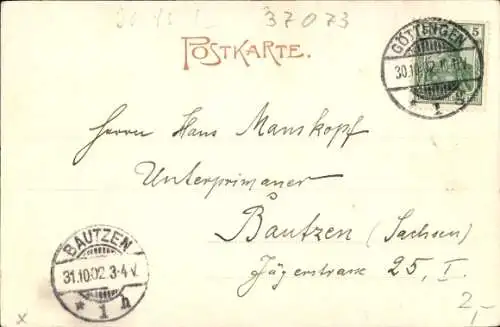 37073
POSTKARTE.
5
GÖTTINGEN
30.10.02.
* 1
Herrn Hans Manskopf
Unterprimaner
Bautzen (Sachsen)
Jägerstrasse 25, I.
BAUTZEN
31.10.02.3-4V.
* 1 h
2,-